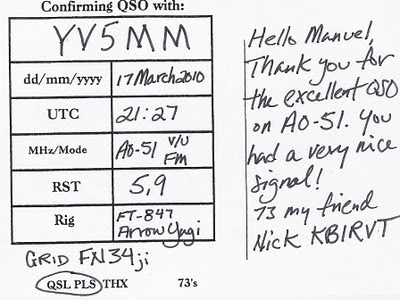 Confirming QSO with:
YV5MM
dd/mm/yyyy 17 March 2010
UTC 21:27
MHz/Mode AO-51 V/U FM
RST 5,9
Rig FT-847 Arrow Yagi
GRID FN34ji
QSL PLS THX 73's
Hello Manuel,
Thank you for
the excellent QSO
on AO-51. You
had a very nice
signal!
73 my friend
Nick KB1RVT